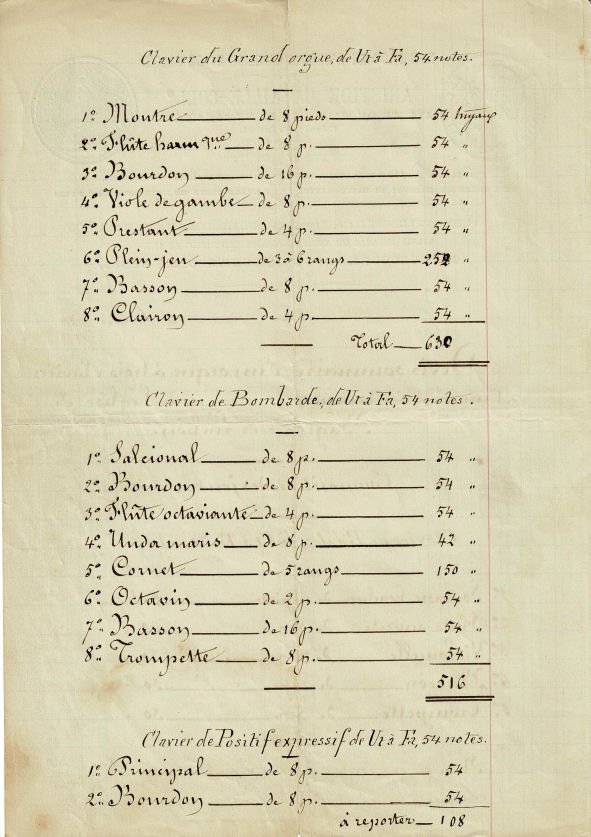 Clavier du Grand orgue, de Ut à Fa, 54 notes.
1º Montre de 8 pieds 54 tuyaux
2º Flûte harm que de 8 p. 54 "
3º Bourdon de 16 p. 54 "
4º Viole de gambe de 8 p. 54 "
5º Prestant de 4 p. 54 "
6º Plein-jeu de 3 à 6 rangs 252 "
7º Basson de 8 p. 54 "
8º Clairon de 4 p. 54 "
Total 630
Clavier de Bombarde, de Ut à Fa, 54 notes.
1º Salcional de 8 p. 54 "
2º Bourdon de 8 p. 54 "
3º Flûte octaviante de 4 p. 54 "
4º Unda maris de 8 p. 42 "
5º Cornet de 5 rangs 150 "
6º Octavin de 2 p. 54 "
7º Basson de 16 p. 54 "
8º Trompette de 8 p. 54 "
516
Clavier de Positif expressif de Ut à Fa, 54 notes.
1º Principal de 8 p. 54
2º Bourdon de 8 p. 54
à reporter 108